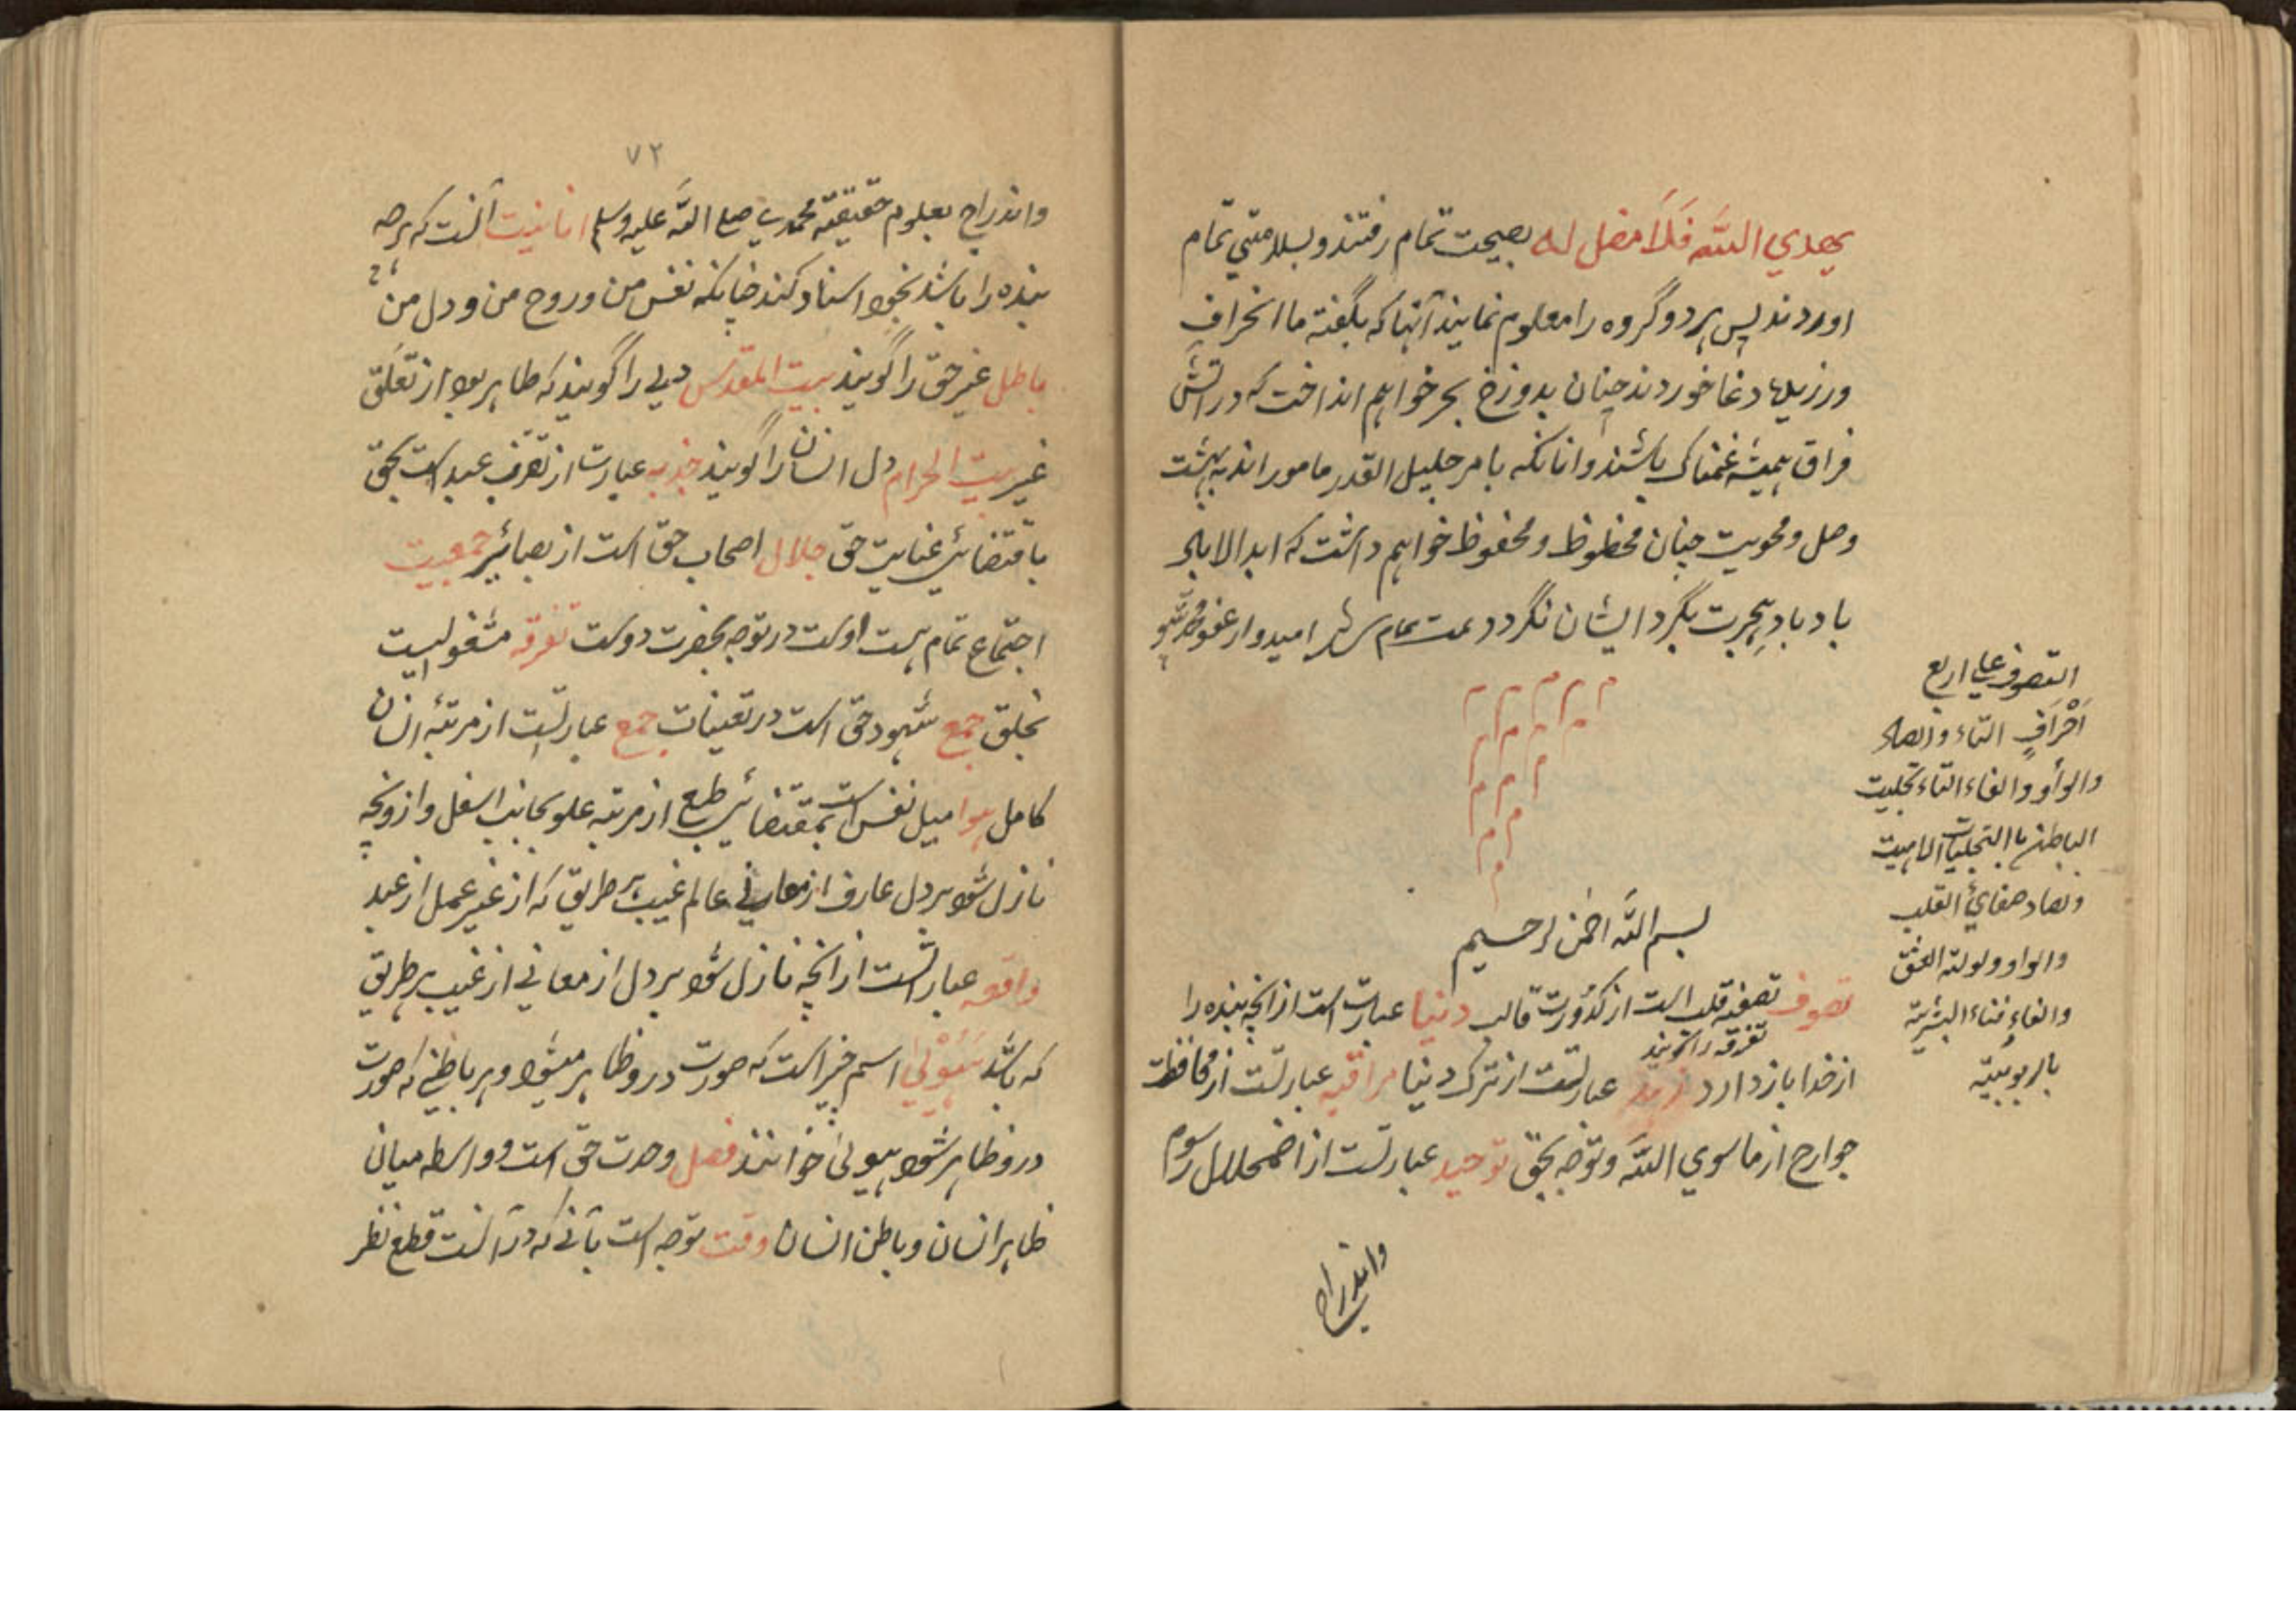 يهدي الله فلا مضل له بصیحت تمام رفتند و بسلامتی تمام
اوردند پس هر دو گروه را معلوم نمایند آنها که بگفته ما انحراف
ورزیدها دغا خوردند چنان بدوزخ بحر خواهم انداخت که در اتش
فراق همیشه غمناک باشند و انانکه بامر جلیل القدر مامور اند به بهشت
وصل و محویت چنان محظوظ و محفوظ خواهم داشت که ابد الاباد
باد باد هجرت بگرد ایشان نگردد تمت تمام شد امیدوار عفو
م م م م م
م م م م
م م م
م م م
م م
م
التصوف علی اربع
احراف التاء والصاد
والواو والفاء التاء تجلیت
الباطن باالتجلیات الاهیت
وصاد صفائ القلب
والواو ولولته العشق
والفاء فناء البشریته
بالربوبیته
بسم الله الرحمن الرحیم
تصوف تصفیه قلب است از کدورت قالب دنیا عبارت است از انچه بنده را
تفرقه را گویند
از خدا باز دارد زهد عبارتست از ترک دنیا مراقبه عبارتست از محافظت
جوارح از ما سوي الله و توجه بحق توحید عبارتست از اضمحلال رسوم
واندراج
۷۲
واندراج بعلوم حقیقته محمدي صلے الله علیه وسلم انانیت آنست که هرچه
بنده را باشد بخود اسناد کند چنانکه نفس من و روح من و دل من
باطل غیر حق را گویند بیت المقدس دلی را گویند که طاهر بود از تعلق
غیر بیت الحرام دل انسان را گویند جذبه عبارت از تقرب عبد است بحق
باقتضائی عنایت حق جلال احتجاب حق است از بصائیر جمعیت
اجتماع تمام همت اوست در توجه بحضرت دوست تفرقه مشغولیت
بخلق جمع شهود حق است در تعینات جمع عبارتست از مرتبه انسان
کامل هوا میل نفس است بمقتضائی طبع از مرتبه علو بجانب اسفل و
نازل شود بر دل عارف از معانی عالم غیب بر طریق که از غیر عمل از عبد
واقعه عبارتست از انچه نازل شود بر دل از معانی از غیب بر طریق
که باشد هیولی اسم چیز است که صورت درو ظاهر میشود و هر باطنی که صورت
درو ظاهر شود هیولی خوانند فصل وحدت حق است و واسطه میان
ظاهر انسان و باطن انسان وقت توجه است بآنی که در آنست قطع نظر